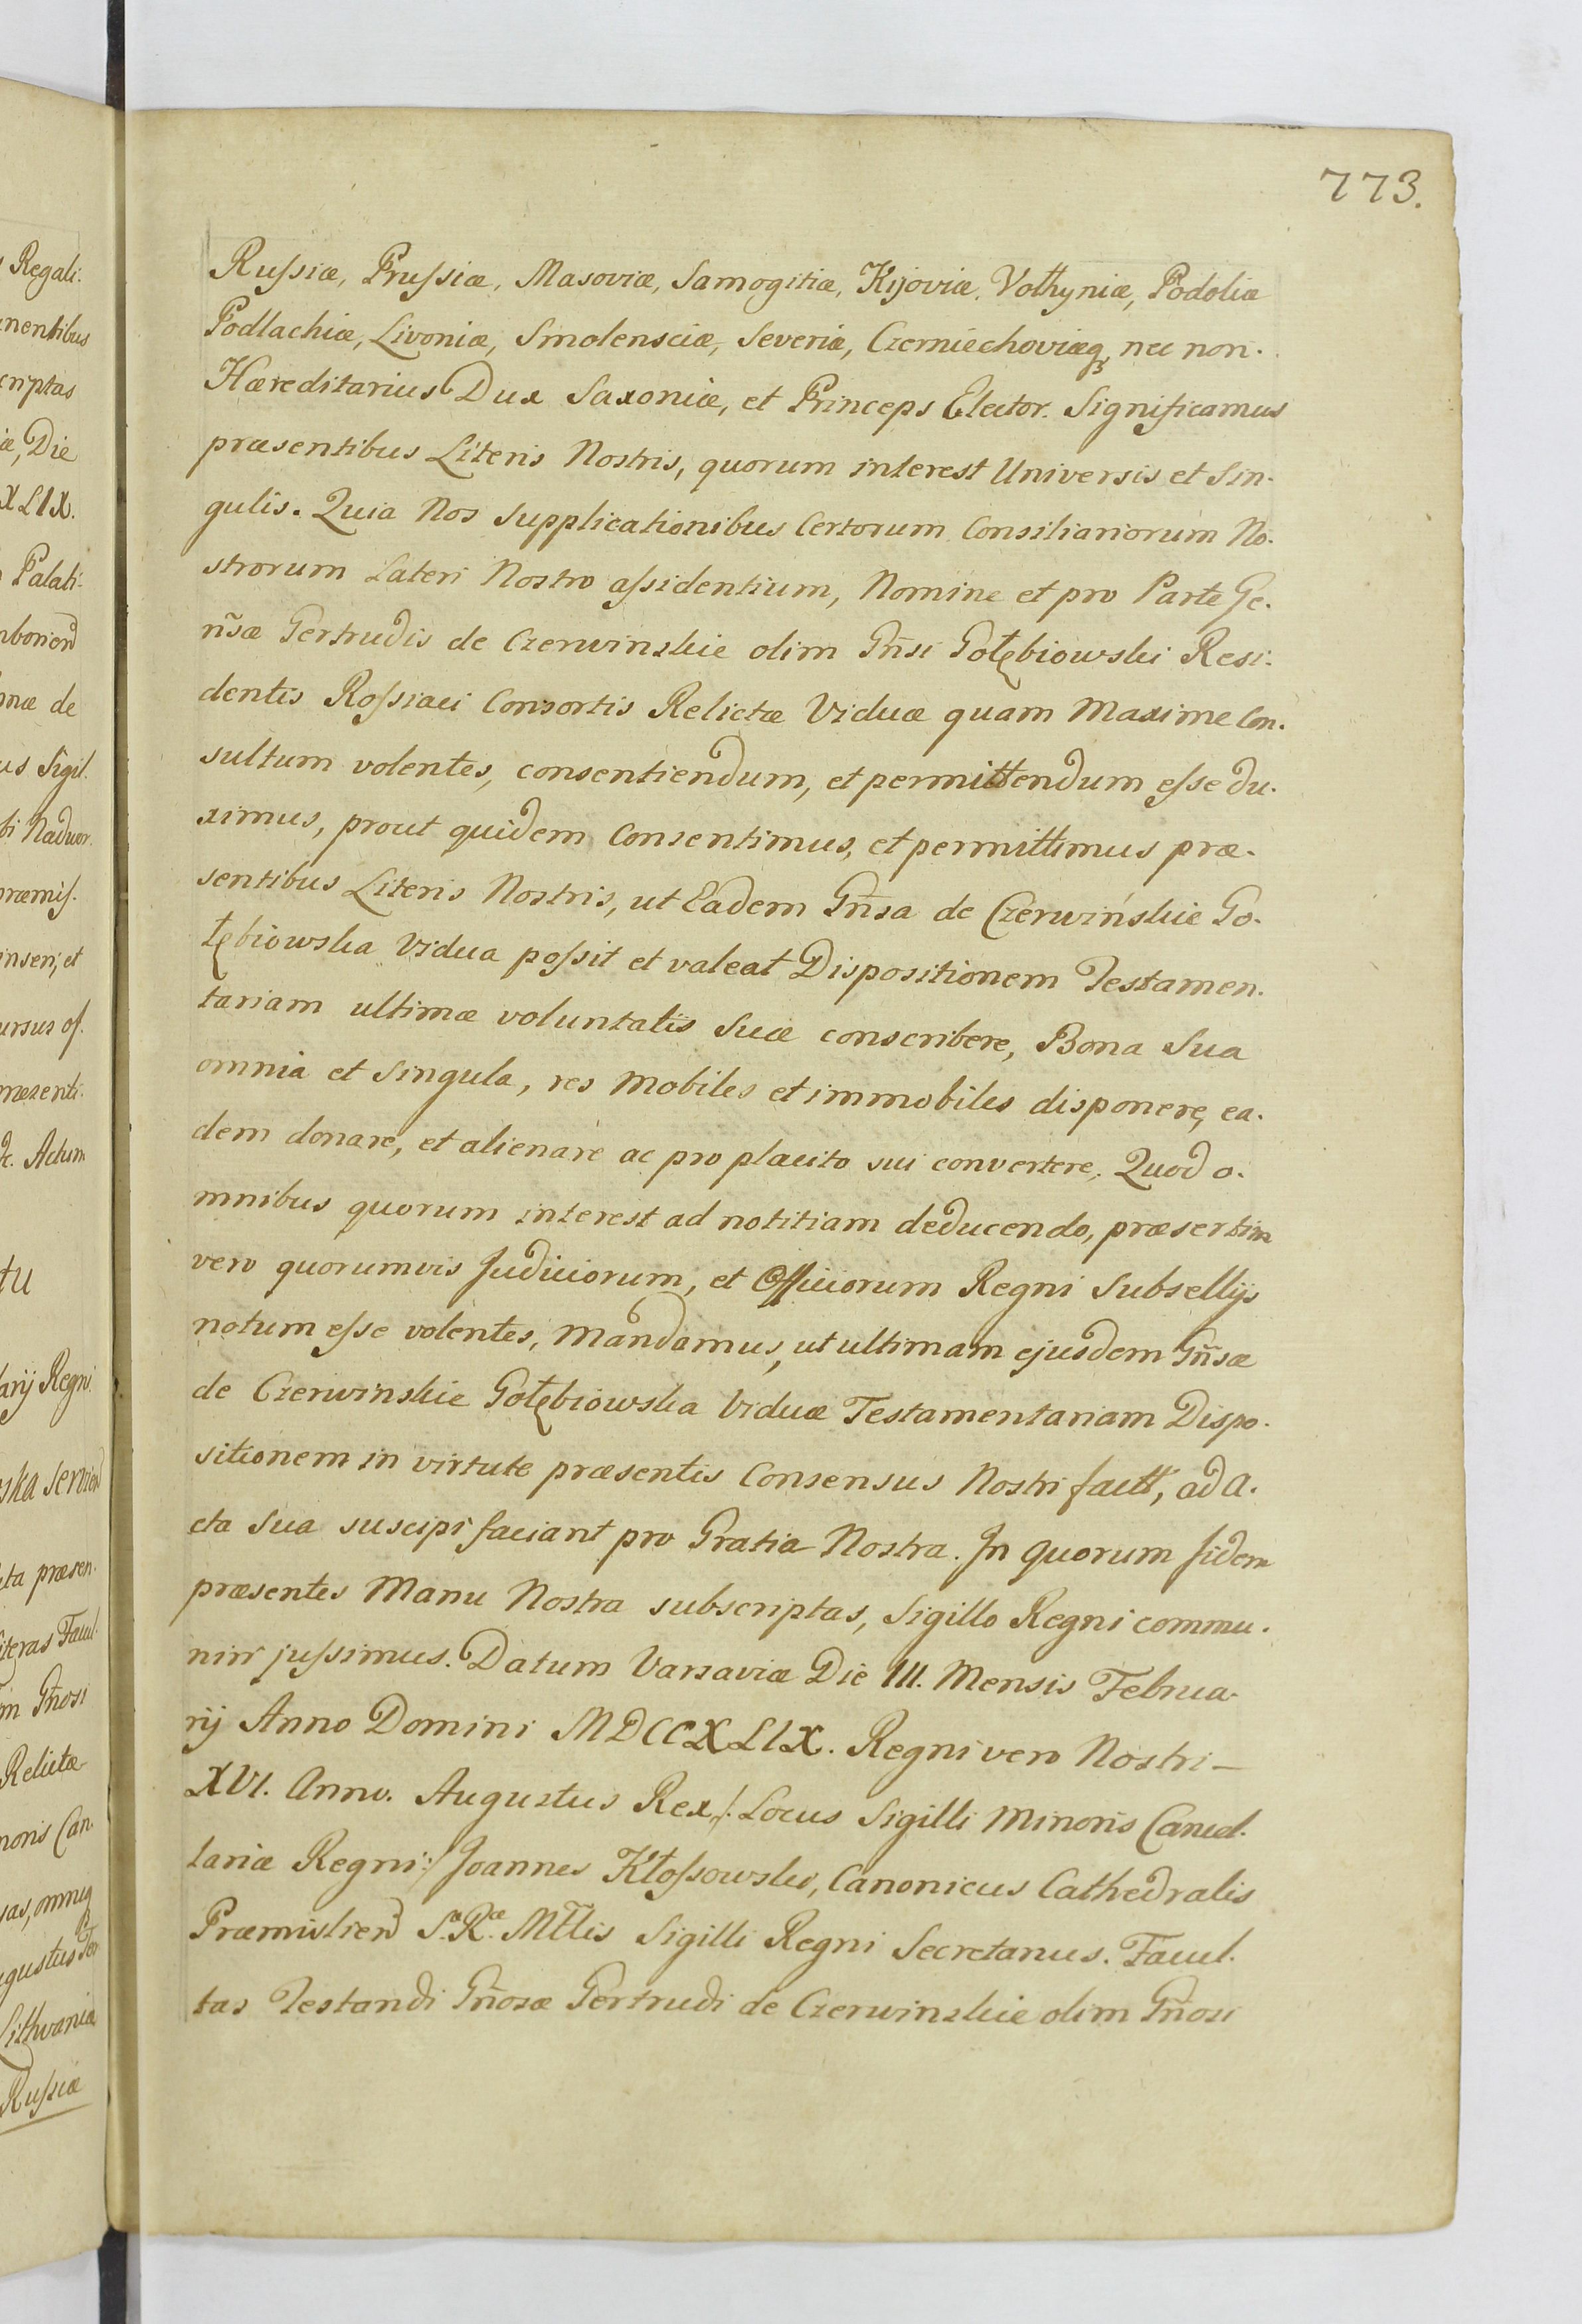 773.
Rußiæ, Prußiæ, Masoviæ, Samogitiæ, Kijoviæ, Volhyniæ, Podoliæ
Podlachiæ, Livoniæ, Smolensciæ, Severiæ, Czerniechoviæq₃ nec non.
Hæreditarius Dux Saxoniæ, et Princeps Elector. Significamus
præsentibus Literis Nostris, quorum interest Universis et Sin-
gulis. Quia Nos Supplicationibus Certorum Consiliariorum No-
strorum Lateri Nostro aßidentium, Nomine et pro Parte Ge-
ns̃æ Gertrudis de Czerwinskie olim Gñsi Gołębiowski Resi-
dentis Roßiaci Consortis Relictæ Viduæ quam Maxime Con-
sultum volentes, consentiendum, et permittendum eße du-
ximus, prout quidem Consentimus, et permittimus præ-
sentibus Literis Nostris, ut Eadem Gñsa de Czerwińskie Go-
łębiowska Vidua poßit et valeat Dispositionem Testamen-
tariam ultimæ voluntatis Suæ conscribere, Bona Sua
omnia et Singula, res Mobiles et immobiles disponere, ea-
dem donare, et alienare ac pro placito sui convertere, Quod o-
mnibus quorum interest ad notitiam deducendo, præsertim
vero quorumvis Judiciorum, et Officiorum Regni Subsellijs
notum eße volentes, Mandamus, ut ultimam ejusdem Gñsæ
de Czerwinskie Gołębiowska Viduæ Testamentariam Dispo-
sitionem in virtute præsentis Consensus Nostri factt, ad A-
cta Sua suscipi faciant pro Gratia Nostra. In quorum fidem
præsentes Manu Nostra subscriptas, Sigillo Regni commu-
niri jußimus. Datum Varsaviæ Die III. Mensis Februa-
rij Anno Domini MDCCXLIX. Regni vero Nostri —
XVI. Anno. Augustus Rex /: Locus Sigilli Minoris Cancel-
lariæ Regni :/ Joannes Kłoßowski, Canonicus Cathedralis
Præmislien̄ S.æ R.æ Mttis Sigilli Regni Secretarius. Facul-
tas Testandi Gñosæ Gertrudi de Czerwinskie olim Gñosi